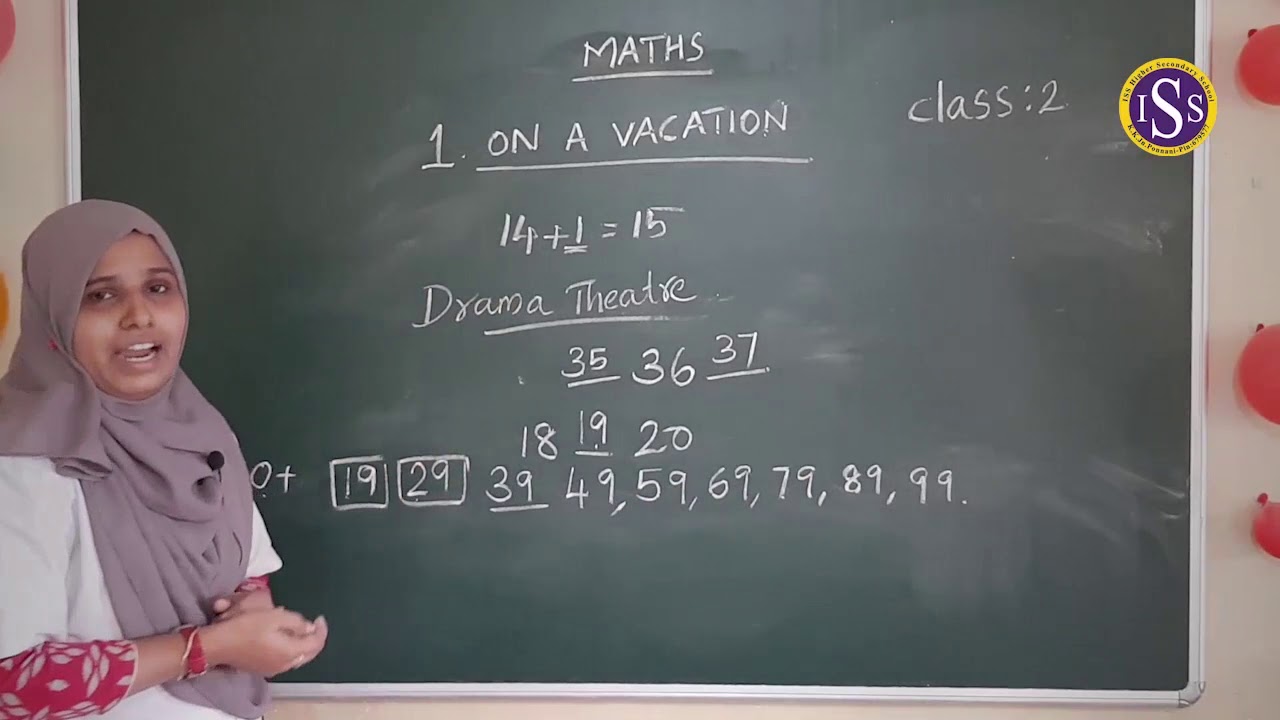 MATHS
class:2
1. ON A VACATION
14+1=15
Drama Theatre
35 36 37
18 19 20
0+ 19 29 39 49, 59, 69, 79, 89, 99.
ISS Higher Secondary School
ISS